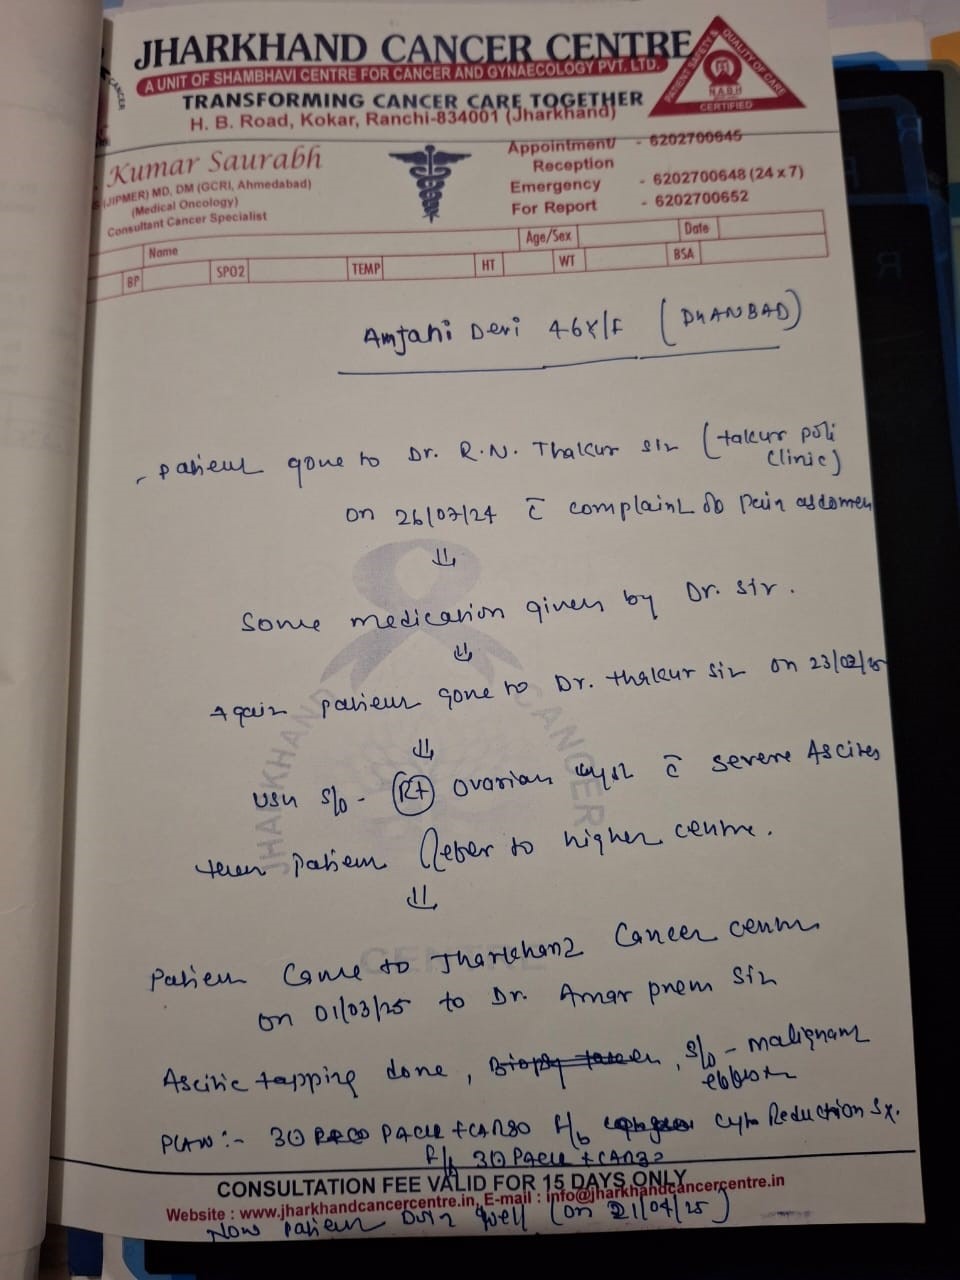 JHARKHAND CANCER CENTRE
A UNIT OF SHAMBHAVI CENTRE FOR CANCER AND GYNAECOLOGY PVT. LTD.
TRANSFORMING CANCER CARE TOGETHER
H. B. Road, Kokar, Ranchi-834001 (Jharkhand)
PATIENT SAFETY & QUALITY OF CARE
N.A.B.H
CERTIFIED
CANCER
Kumar Saurabh
(JIPMER) MD, DM (GCRI, Ahmedabad)
(Medical Oncology)
Consultant Cancer Specialist
Appointment/ - 6202700645
Reception
Emergency - 6202700648 (24 x 7)
For Report - 6202700652
Name Age/Sex Date
BP SPO2 TEMP HT WT BSA
Amjani Devi 46Y/F (DHANBAD)
- patient gone to Dr. R.N. Thakur sir (takur poli
clinic)
on 26/07/24 c̄ complaint of pain abdomen
⇓
Some medication given by Dr. sir.
⇓
Again patient gone to Dr. thakur sir on 23/02/25
⇓
USG s/o - (Rt) ovarian cyst c̄ severe Ascites
then patient Refer to higher centre.
⇓
Patient Came to Jharkhand Cancer centre
on 01/03/25 to Dr. Amar prem sir
Ascitic tapping done, s/o - malignant
effusion
PLAN :- 3 PACLI + CARBO f/b Cyto Reduction Sx.
f/b 3 PACLI + CARBO
JHARKHAND CANCER
CENTRE
CONSULTATION FEE VALID FOR 15 DAYS ONLY
Website : www.jharkhandcancercentre.in, E-mail : info@jharkhandcancercentre.in
Now patient well (on 21/04/25)